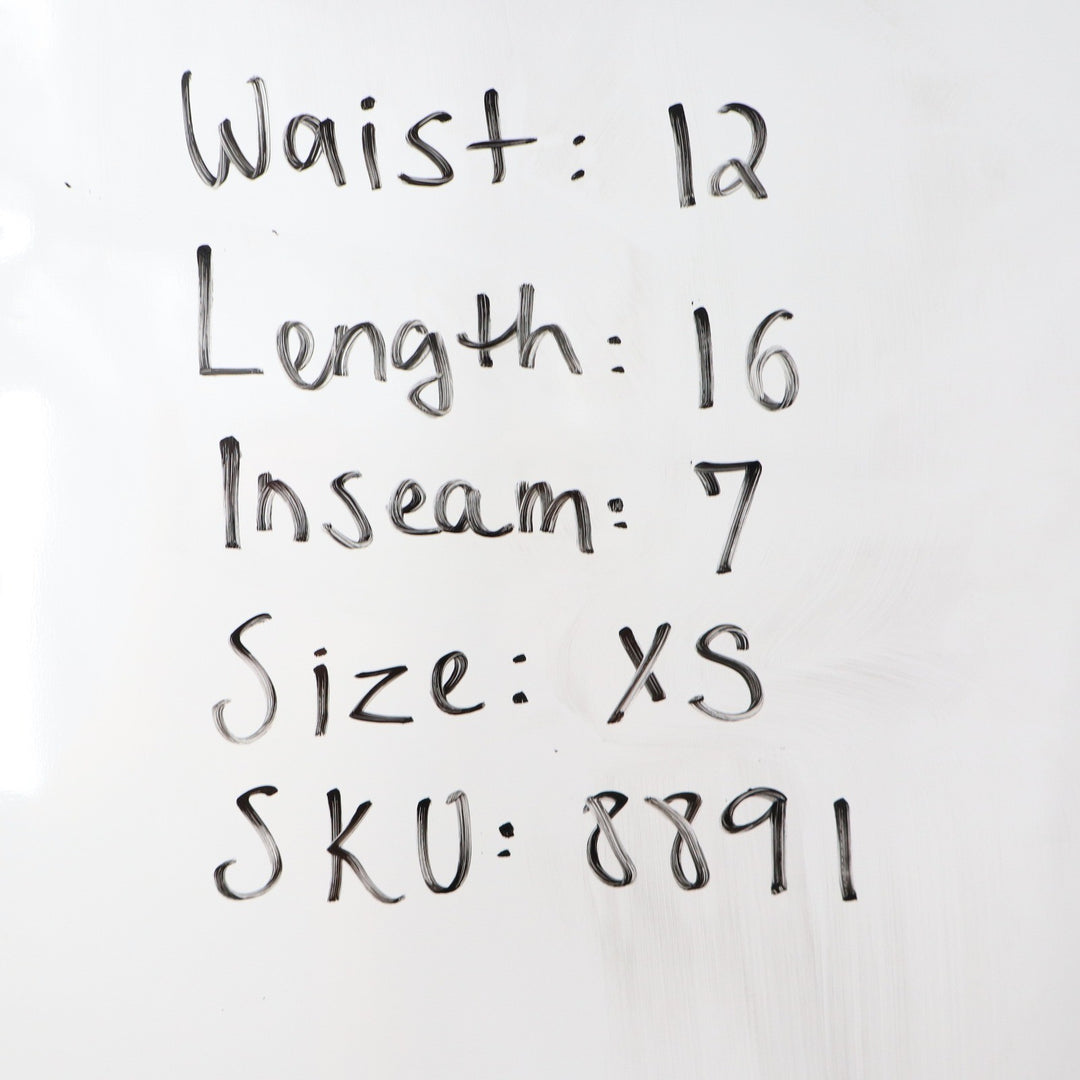 Waist: 12
Length: 16
Inseam: 7
Size: XS
SKU: 8891